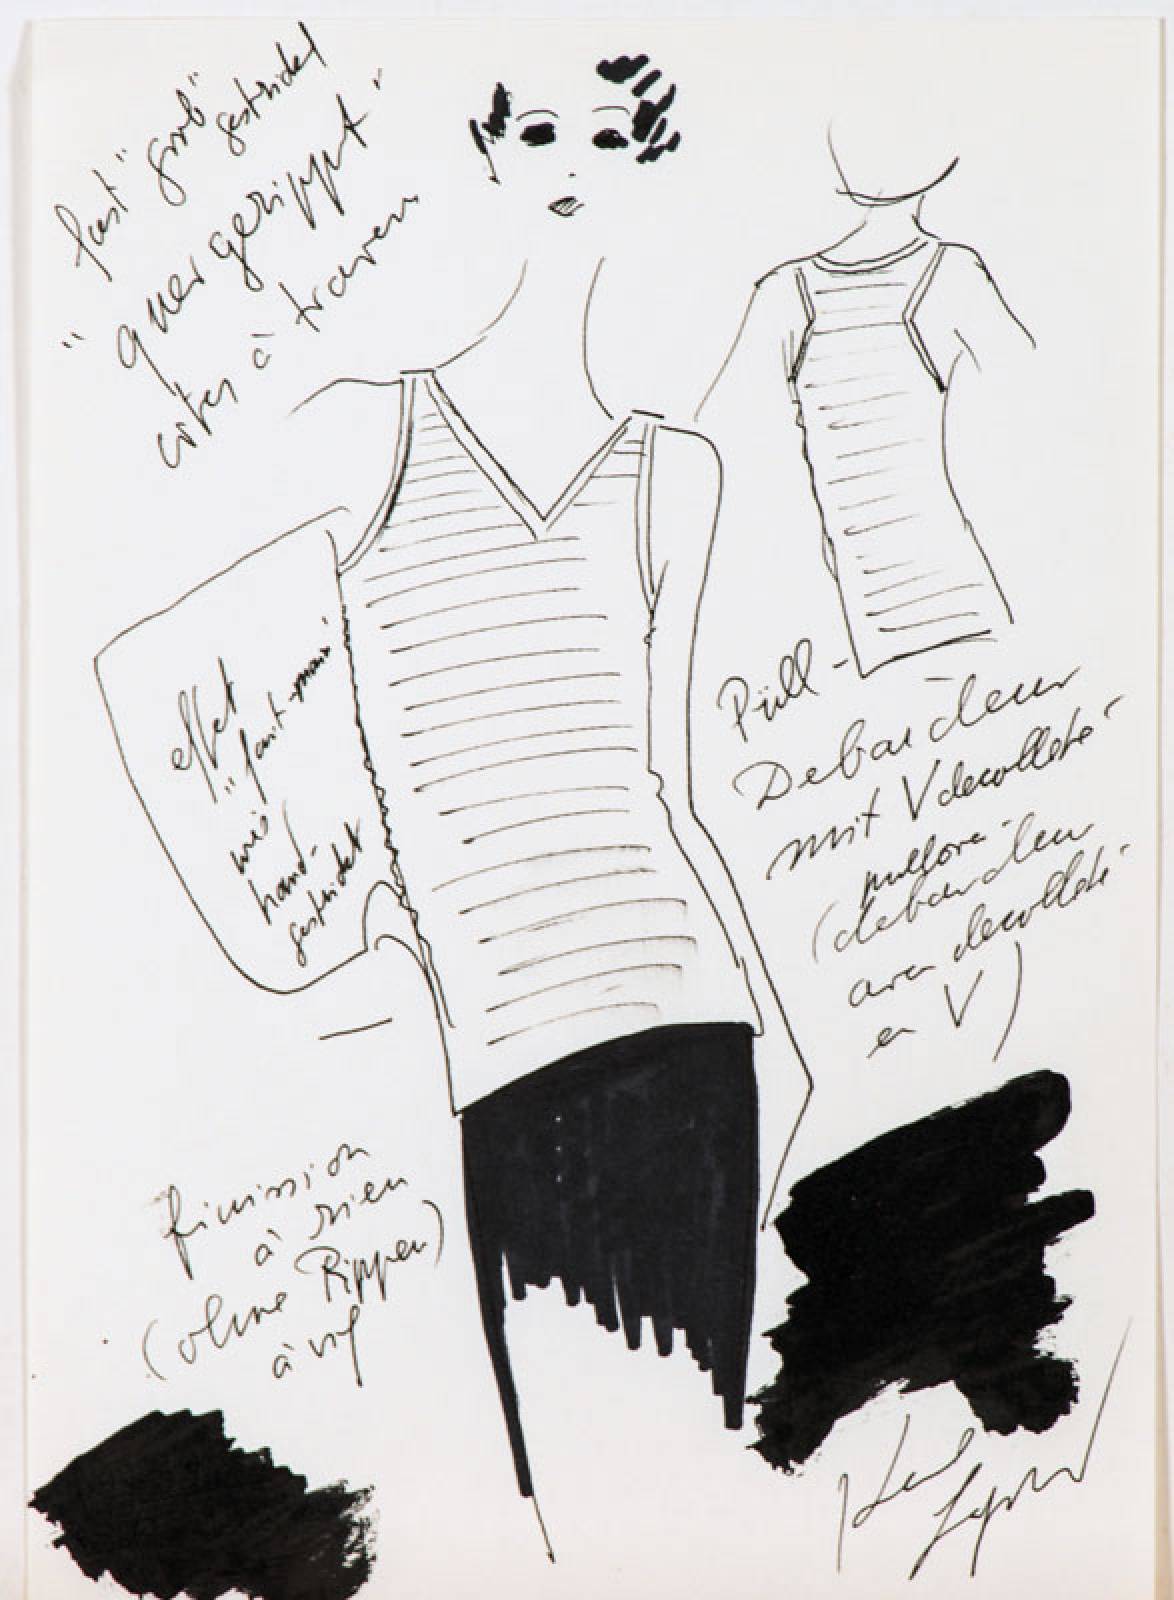 fast "grob" gestrickt
"quergerippt"
côtes à travers
effet
"fait-main"
wie
hand-
gestrickt
Püll-
Debardeur
mit V decolleté
pullover
(debardeur
avec decolleté
en V)
finission
à rien
(ohne Rippen)
à vif
Karl Lagerfeld